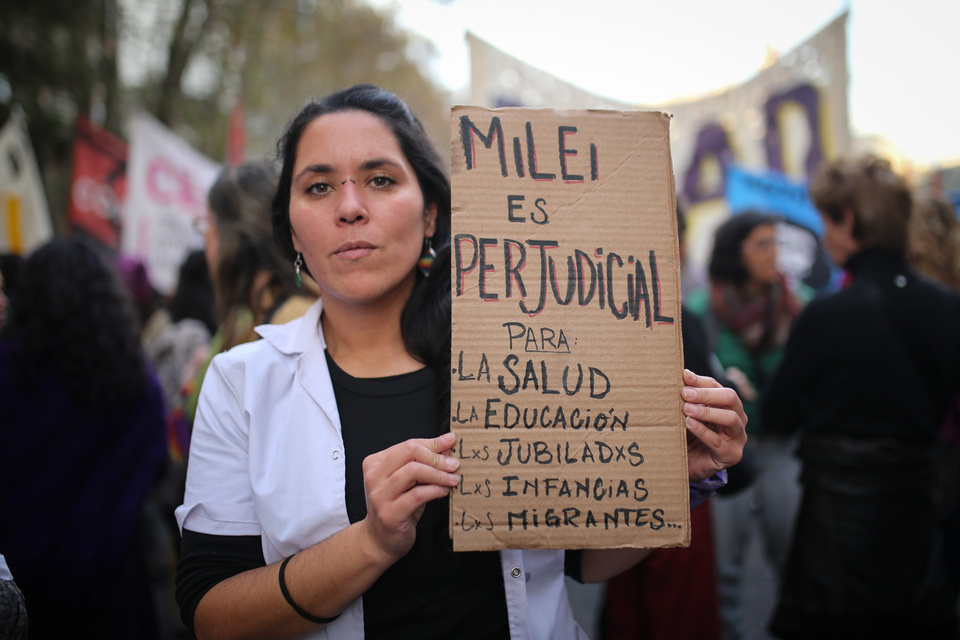 MILEI
ES
PERJUDICIAL
PARA:
.LA SALUD
.LA EDUCACIÓN
.LxS JUBILADxS
.LxS INFANCIAS
.LxS MIGRANTES...